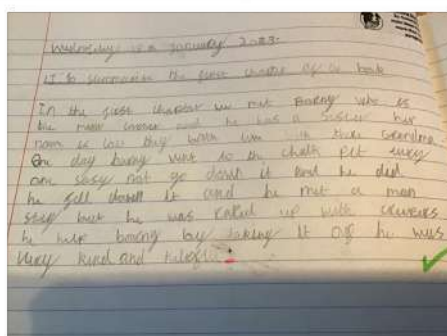 Wednesday is a January 2023.
LI to summarise the first chapter of a book
In the first chapter we met Barny who is
the main and he has a sister her
nam is Lou thay both live with their Grandma
One day barny went to the chalk pit
one saey not go down it and he did
he fell down it and he met a man
stop but he was caled up with
he help barny by taking it off he was
very kind and